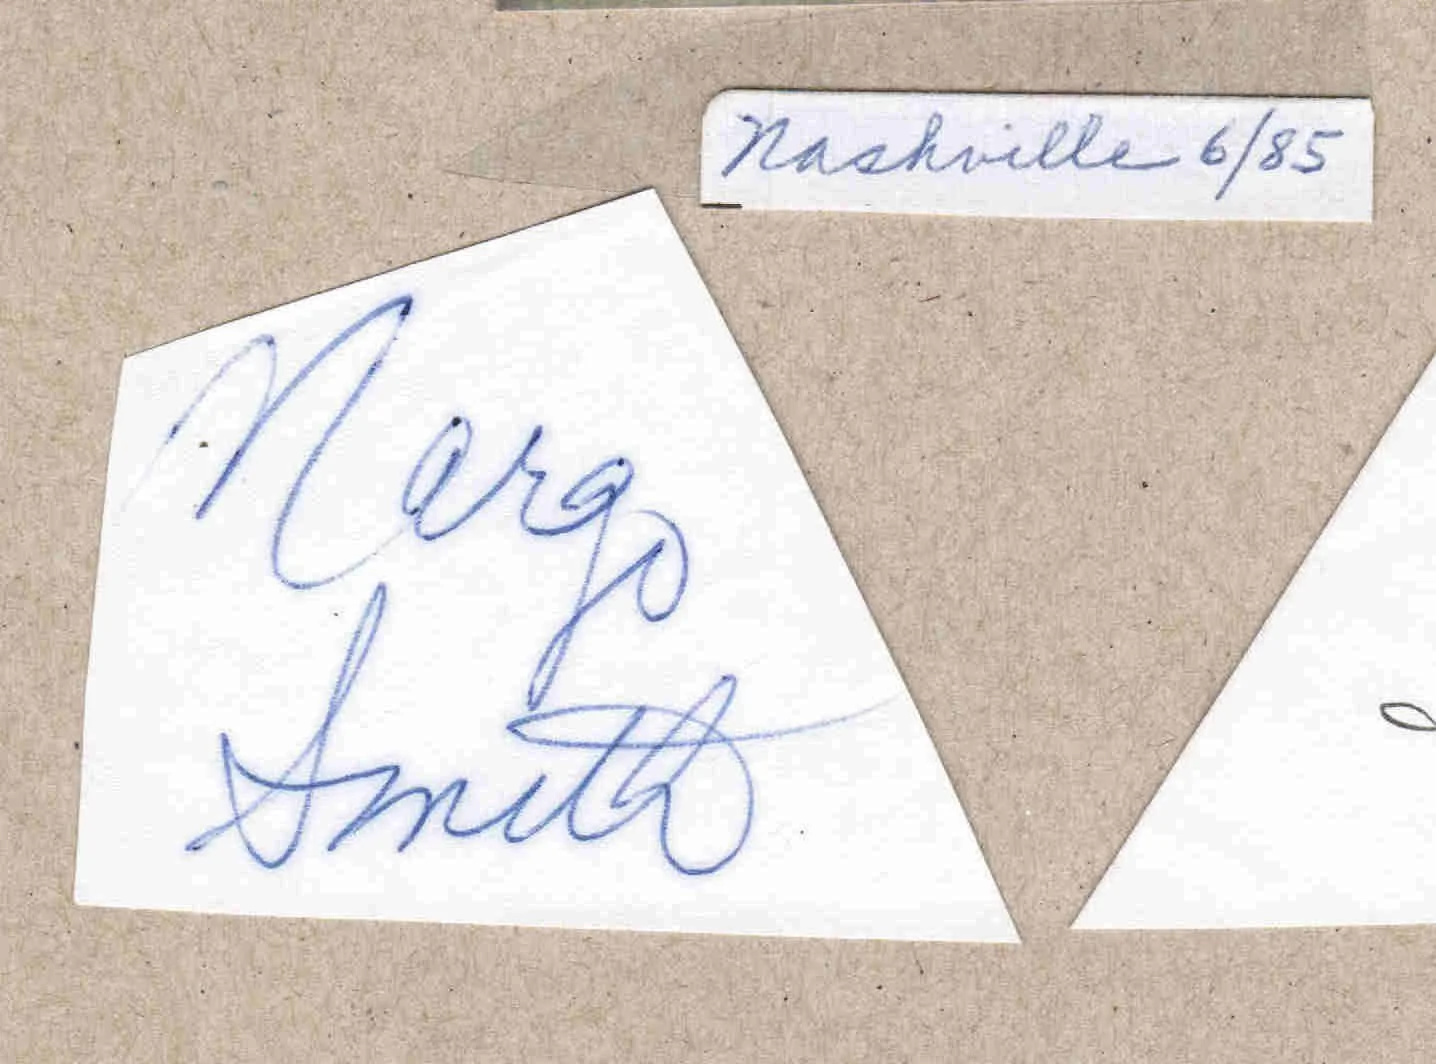 Nashville 6/85
Margo
Smith